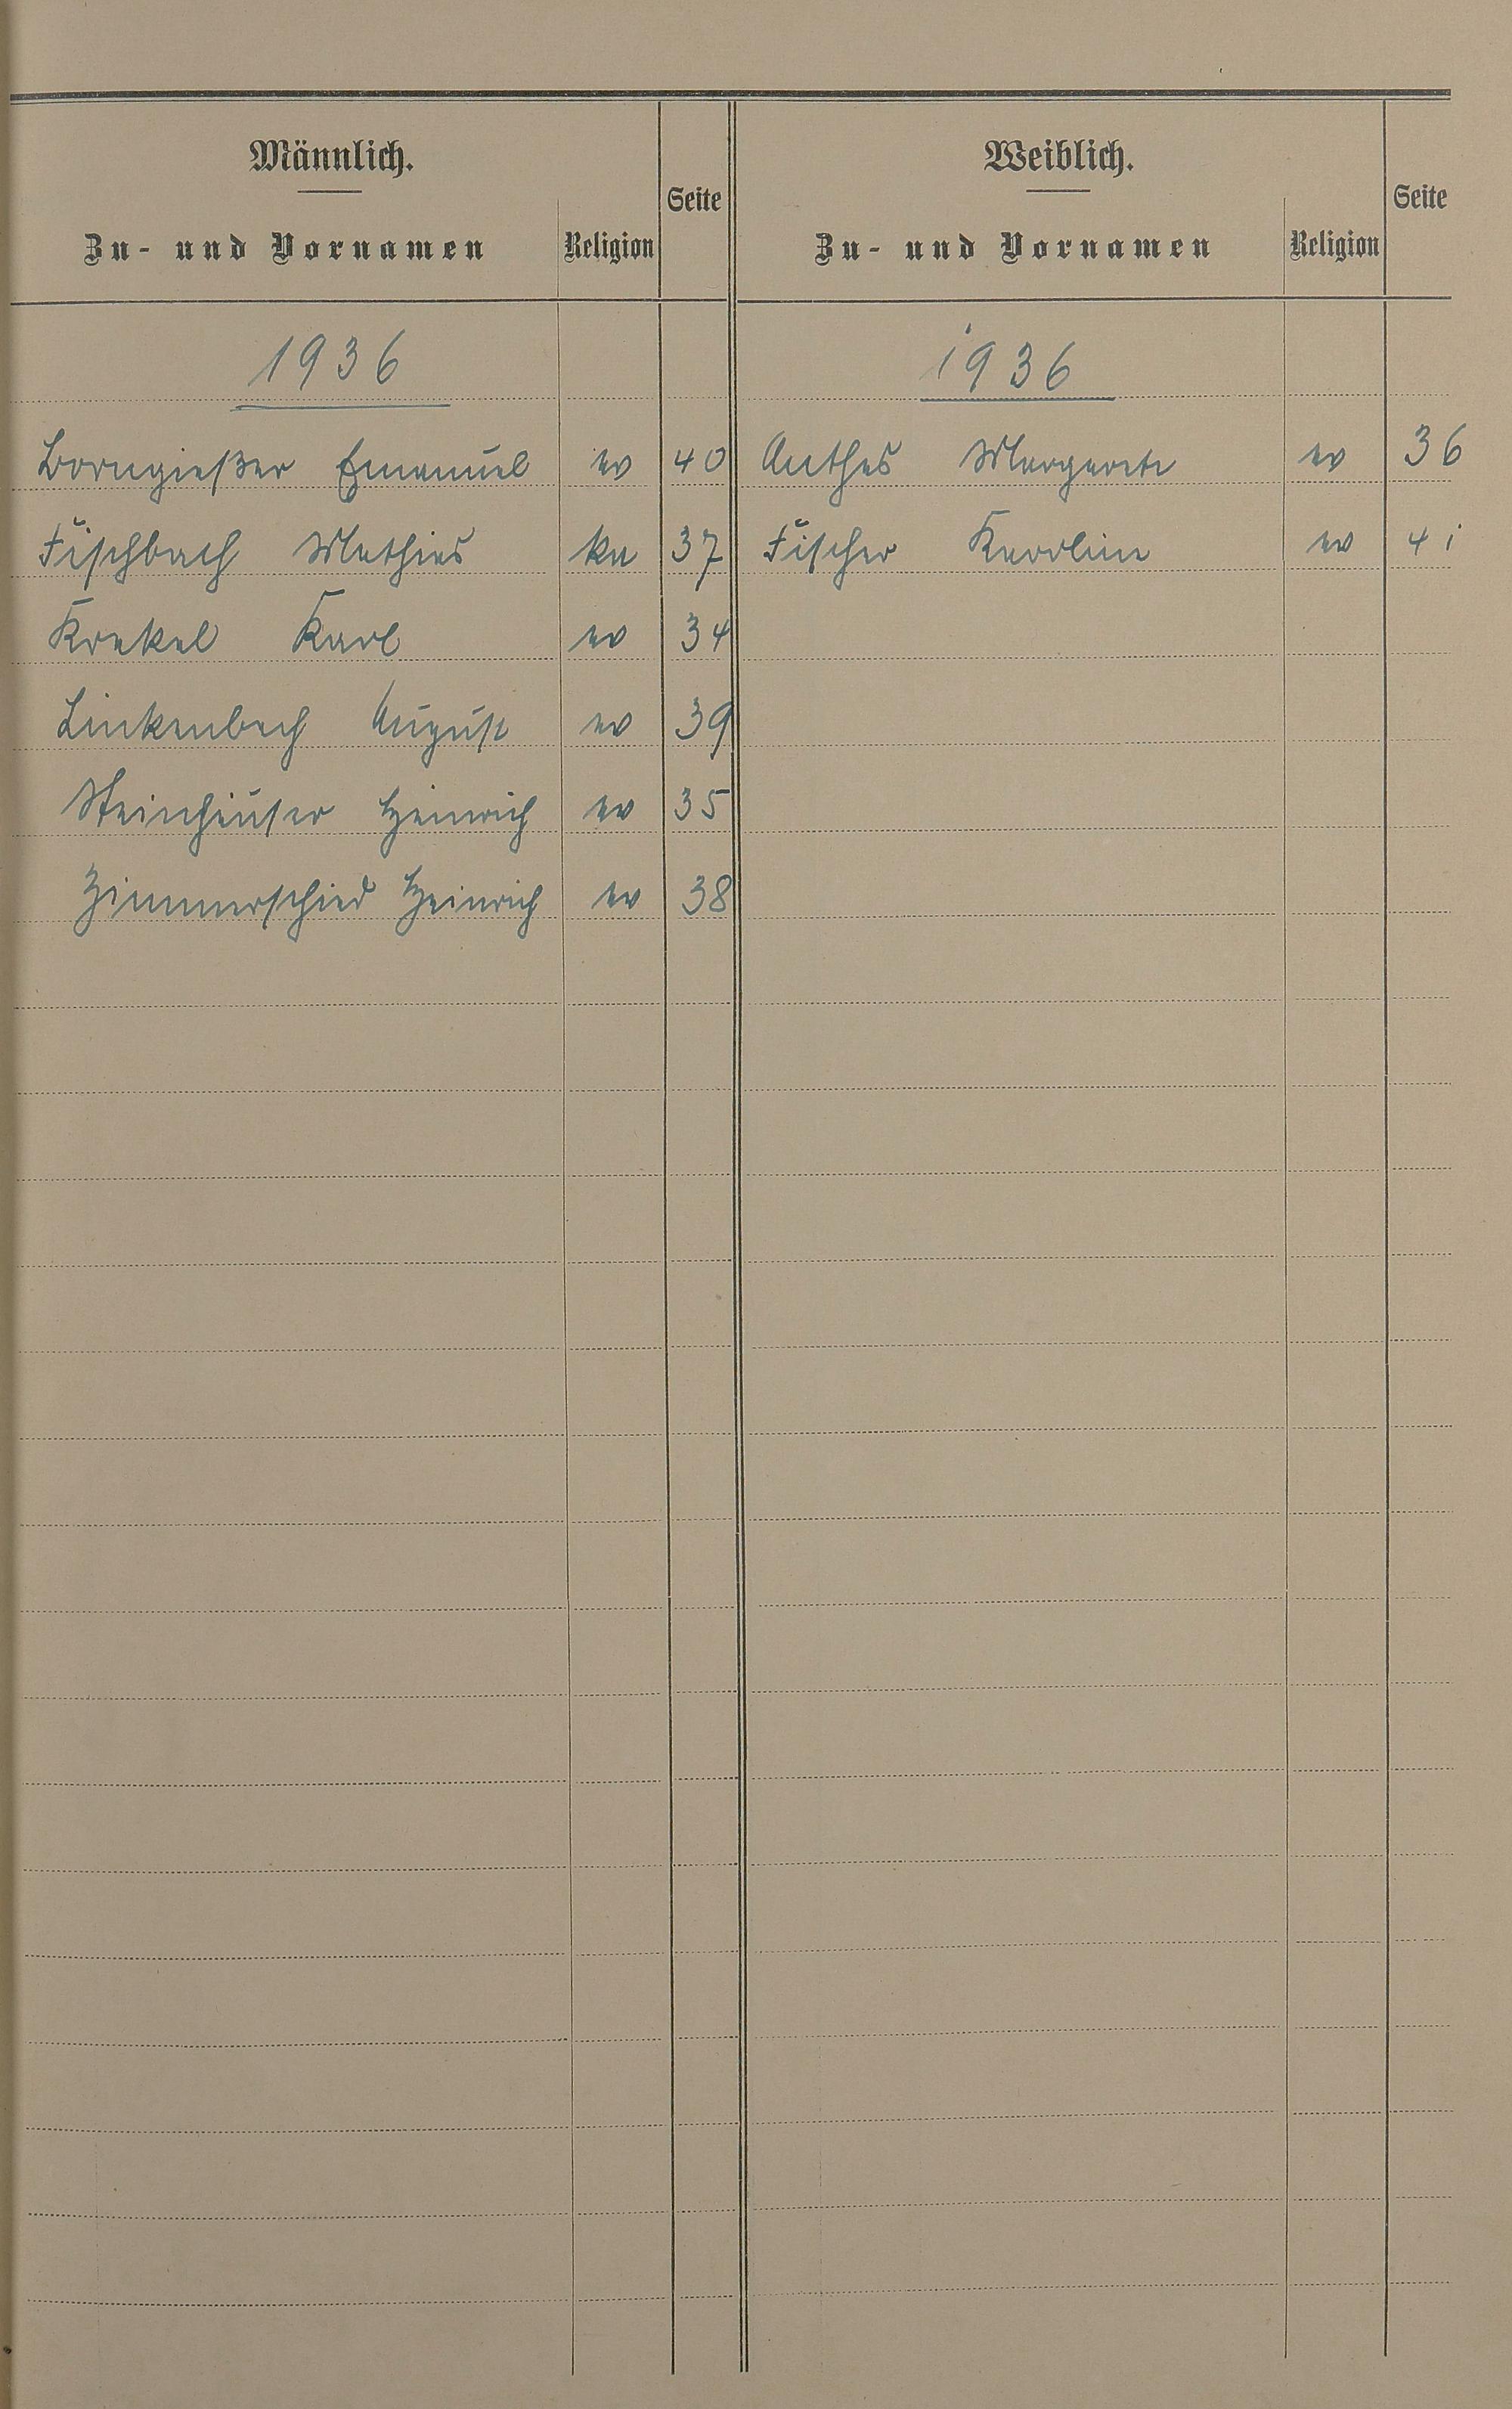 Männlich.
Zu- und Vornamen Religion Seite
1936
Borngießer Emanuel ev 40
Fischbach Mathias ka 37
Krekel Karl ev 34
Linkenbach August ev 39
Steinhäuser Heinrich ev 35
Zimmerschied Heinrich ev 38
Weiblich.
Zu- und Vornamen Religion Seite
1936
Anthes Margarete ev 36
Fischer Karoline ev 41